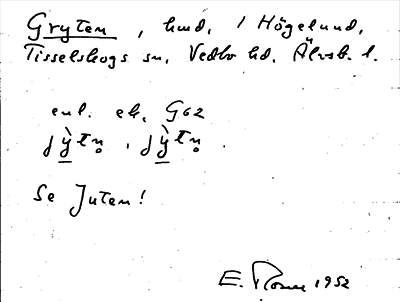 Gryten, hmd, i Högelund,
Tisselskogs sn, Vedbo hd, Älvsb. l.
enl. ek. G62
jỳ̠tn̥, jỳ̠tn̥.
Se Juten!
E. 1952